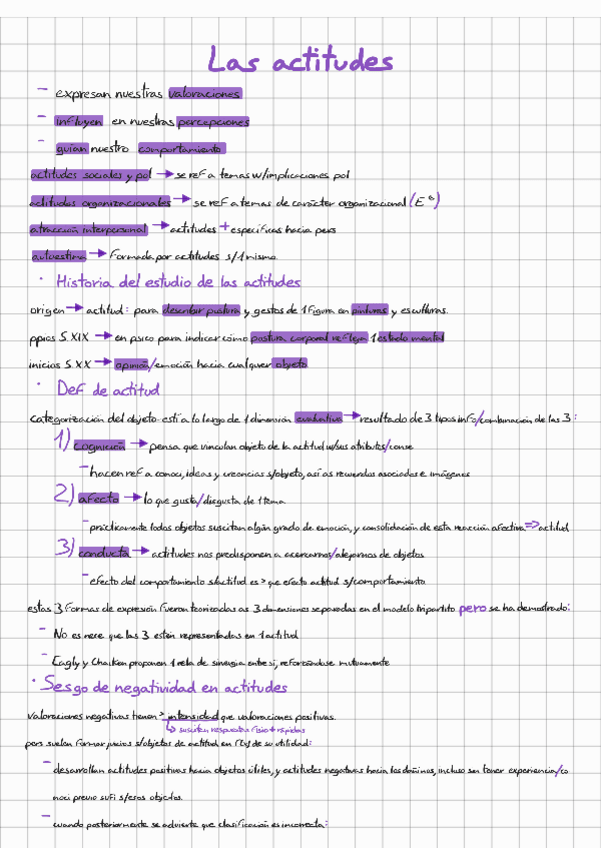 Las actitudes
- expresan nuestras valoraciones
- influyen en nuestras percepciones
- guían nuestro comportamiento
actitudes sociales y pol → se ref a temas w/implicaciones pol
actitudes organizacionales → se ref a temas de carácter organizacional (Eª)
atracción interpersonal → actitudes + específicas hacia pers
autoestima → formada por actitudes s/1 misma
· Historia del estudio de las actitudes
origen → actitud: para describir postura y gestos de 1 figura en pinturas y esculturas.
ppios S.XIX → en psico para indicar cómo postura corporal refleja 1 estado mental
inicios S.XX → opinión/emoción hacia cualquier objeto
· Def de actitud
categorización del objeto-esti a lo largo de 1 dimensión evaluativa → resultado de 3 tipos info/combinación de las 3:
1) cognición → pensa que vinculan objeto de la actitud w/sus atributos/conse
- hacen ref a conoci, ideas y creencias s/objeto, así as recuerdos asociados e imágenes
2) afecto → lo que gusta/disgusta de 1 tema
- prácticamente todos objetos suscitan algún grado de emoción, y consolidación de esta reacción afectiva => actitud
3) conducta → actitudes nos predisponen a acercarnos/alejarnos de objetos
- efecto del comportamiento s/actitud es > que efecto actitud s/comportamiento
estas 3 formas de expresión fueron teorizadas as 3 dimensiones separadas en el modelo tripartito pero se ha demostrado:
- No es nece que las 3 estén representadas en 1 actitud
- Eagly y Chaiken proponen 1 rela de sinergia entre sí, reforzándose mutuamente
· Sesgo de negatividad en actitudes
Valoraciones negativas tienen > intensidad que valoraciones positivas.
↳ suscitan respuestas fisio + rápidas
pers suelen formar juicios s/objetos de actitud en f(x) de su utilidad:
- desarrollan actitudes positivas hacia objetos útiles, y actitudes negativas hacia los dañinos, incluso sin tener experiencia/co
noci previo sufi s/esos objetos.
- cuando posteriormente se advierte que clasificación es incorrecta: